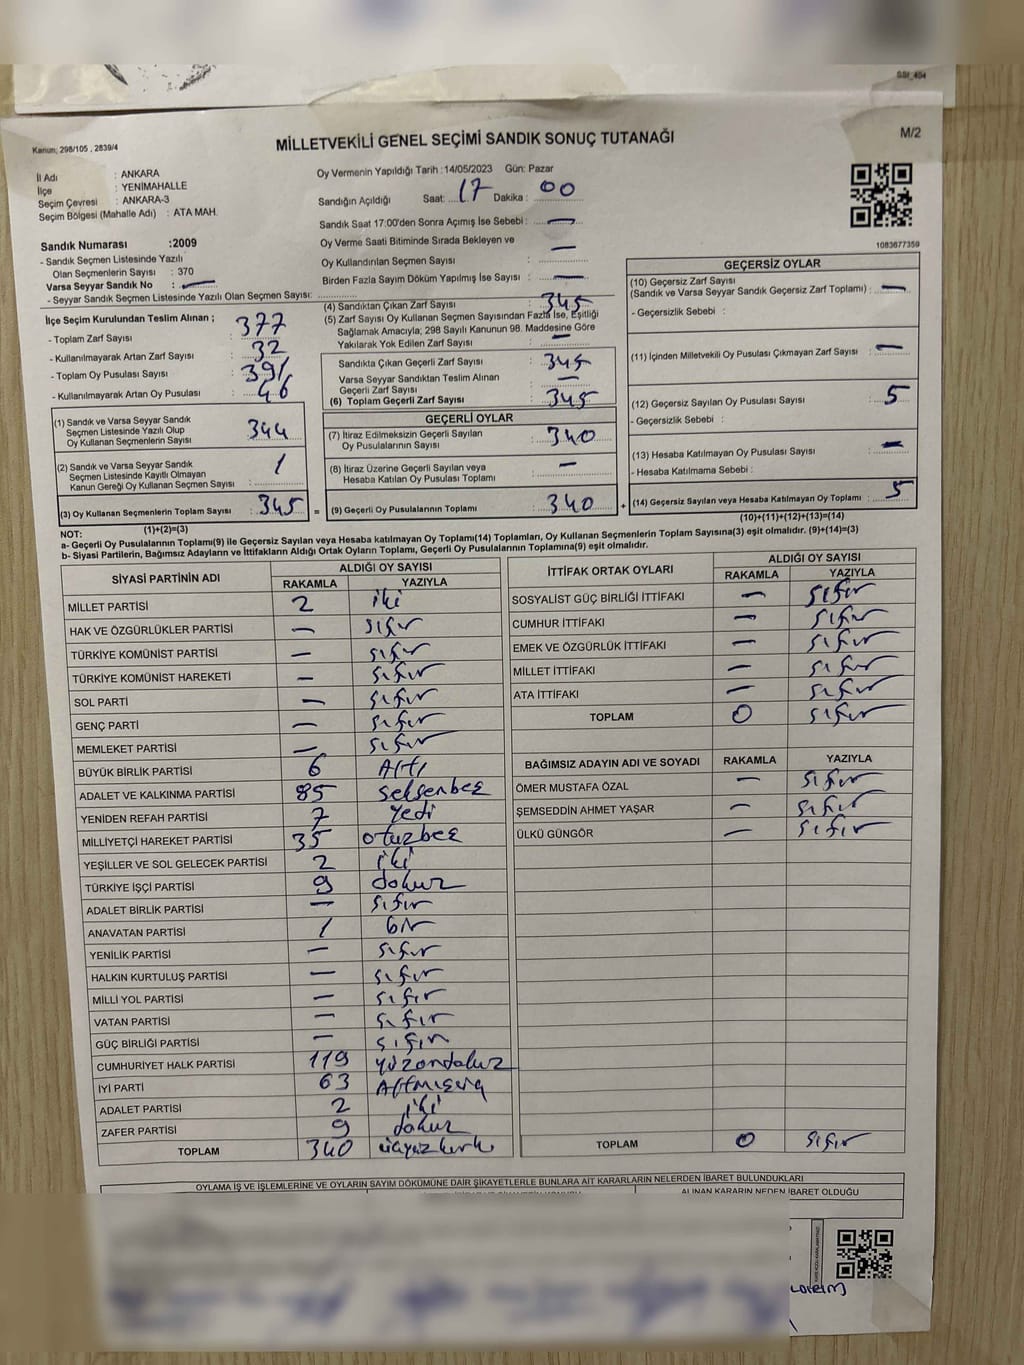 SSI_404
Kanun; 298/105 , 2839/4
MİLLETVEKİLİ GENEL SEÇİMİ SANDIK SONUÇ TUTANAĞI
M/2
İl Adı : ANKARA
İlçe : YENİMAHALLE
Seçim Çevresi : ANKARA-3
Seçim Bölgesi (Mahalle Adı) : ATA MAH.
Sandık Numarası :2009
- Sandık Seçmen Listesinde Yazılı
Olan Seçmenlerin Sayısı : 370
Varsa Seyyar Sandık No : —
- Seyyar Sandık Seçmen Listesinde Yazılı Olan Seçmen Sayısı:
Oy Vermenin Yapıldığı Tarih :14/05/2023 Gün: Pazar
Sandığın Açıldığı Saat: 17 Dakika : 00
Sandık Saat 17:00'den Sonra Açımış İse Sebebi : —
Oy Verme Saati Bitiminde Sırada Bekleyen ve
Oy Kullandırılan Seçmen Sayısı : —
Birden Fazla Sayım Döküm Yapılmış İse Sayısı : —
1083677359
İlçe Seçim Kurulundan Teslim Alınan ;
- Toplam Zarf Sayısı : 377
- Kullanılmayarak Artan Zarf Sayısı : 32
- Toplam Oy Pusulası Sayısı : 391
- Kullanılmayarak Artan Oy Pusulası : 46
(1) Sandık ve Varsa Seyyar Sandık
Seçmen Listesinde Yazılı Olup
Oy Kullanan Seçmenlerin Sayısı : 344
(2) Sandık ve Varsa Seyyar Sandık
Seçmen Listesinde Kayıtlı Olmayan
Kanun Gereği Oy Kullanan Seçmen Sayısı : 1
(3) Oy Kullanan Seçmenlerin Toplam Sayısı : 345
(1)+(2)=(3)
(4) Sandıktan Çıkan Zarf Sayısı : 345
(5) Zarf Sayısı Oy Kullanan Seçmen Sayısından Fazla İse, Eşitliği
Sağlamak Amacıyla; 298 Sayılı Kanunun 98. Maddesine Göre
Yakılarak Yok Edilen Zarf Sayısı : —
Sandıkta Çıkan Geçerli Zarf Sayısı : 345
Varsa Seyyar Sandıktan Teslim Alınan
Geçerli Zarf Sayısı : —
(6) Toplam Geçerli Zarf Sayısı : 345
GEÇERLİ OYLAR
(7) İtiraz Edilmeksizin Geçerli Sayılan
Oy Pusulalarının Sayısı : 340
(8) İtiraz Üzerine Geçerli Sayılan veya
Hesaba Katılan Oy Pusulası Toplamı : —
= (9) Geçerli Oy Pusulalarının Toplamı : 340 +
GEÇERSİZ OYLAR
(10) Geçersiz Zarf Sayısı
(Sandık ve Varsa Seyyar Sandık Geçersiz Zarf Toplamı) : —
- Geçersizlik Sebebi :
(11) İçinden Milletvekili Oy Pusulası Çıkmayan Zarf Sayısı : —
(12) Geçersiz Sayılan Oy Pusulası Sayısı : 5
- Geçersizlik Sebebi :
(13) Hesaba Katılmayan Oy Pusulası Sayısı : —
- Hesaba Katılmama Sebebi :
(14) Geçersiz Sayılan veya Hesaba Katılmayan Oy Toplamı : 5
(10)+(11)+(12)+(13)=(14)
NOT:
a- Geçerli Oy Pusulalarının Toplamı(9) ile Geçersiz Sayılan veya Hesaba katılmayan Oy Toplamı(14) Toplamları, Oy Kullanan Seçmenlerin Toplam Sayısına(3) eşit olmalıdır. (9)+(14)=(3)
b- Siyasi Partilerin, Bağımsız Adayların ve İttifakların Aldığı Ortak Oyların Toplamı, Geçerli Oy Pusulalarının Toplamına(9) eşit olmalıdır.
SİYASİ PARTİNİN ADI ALDIĞI OY SAYISI
RAKAMLA YAZIYLA
MİLLET PARTİSİ 2 iki
HAK VE ÖZGÜRLÜKLER PARTİSİ — sıfır
TÜRKİYE KOMÜNİST PARTİSİ — sıfır
TÜRKİYE KOMÜNİST HAREKETİ — sıfır
SOL PARTİ — sıfır
GENÇ PARTİ — sıfır
MEMLEKET PARTİSİ — sıfır
BÜYÜK BİRLİK PARTİSİ 6 Altı
ADALET VE KALKINMA PARTİSİ 85 seksenbeş
YENİDEN REFAH PARTİSİ 7 yedi
MİLLİYETÇİ HAREKET PARTİSİ 35 otuzbeş
YEŞİLLER VE SOL GELECEK PARTİSİ 2 iki
TÜRKİYE İŞÇİ PARTİSİ 9 dokuz
ADALET BİRLİK PARTİSİ — sıfır
ANAVATAN PARTİSİ 1 bir
YENİLİK PARTİSİ — sıfır
HALKIN KURTULUŞ PARTİSİ — sıfır
MİLLİ YOL PARTİSİ — sıfır
VATAN PARTİSİ — sıfır
GÜÇ BİRLİĞİ PARTİSİ — sıfır
CUMHURİYET HALK PARTİSİ 119 yüzondokuz
İYİ PARTİ 63 Altmışüç
ADALET PARTİSİ 2 iki
ZAFER PARTİSİ 9 dokuz
TOPLAM 340 üçyüzkırk
İTTİFAK ORTAK OYLARI ALDIĞI OY SAYISI
RAKAMLA YAZIYLA
SOSYALİST GÜÇ BİRLİĞİ İTTİFAKI — sıfır
CUMHUR İTTİFAKI — sıfır
EMEK VE ÖZGÜRLÜK İTTİFAKI — sıfır
MİLLET İTTİFAKI — sıfır
ATA İTTİFAKI — sıfır
TOPLAM 0 sıfır
BAĞIMSIZ ADAYIN ADI VE SOYADI RAKAMLA YAZIYLA
ÖMER MUSTAFA ÖZAL — sıfır
ŞEMSEDDİN AHMET YAŞAR — sıfır
ÜLKÜ GÜNGÖR — sıfır
TOPLAM 0 sıfır
OYLAMA İŞ VE İŞLEMLERİNE VE OYLARIN SAYIM DÖKÜMÜNE DAİR ŞİKAYETLERLE BUNLARA AİT KARARLARIN NELERDEN İBARET BULUNDUKLARI
ALINAN KARARIN NEDEN İBARET OLDUĞU